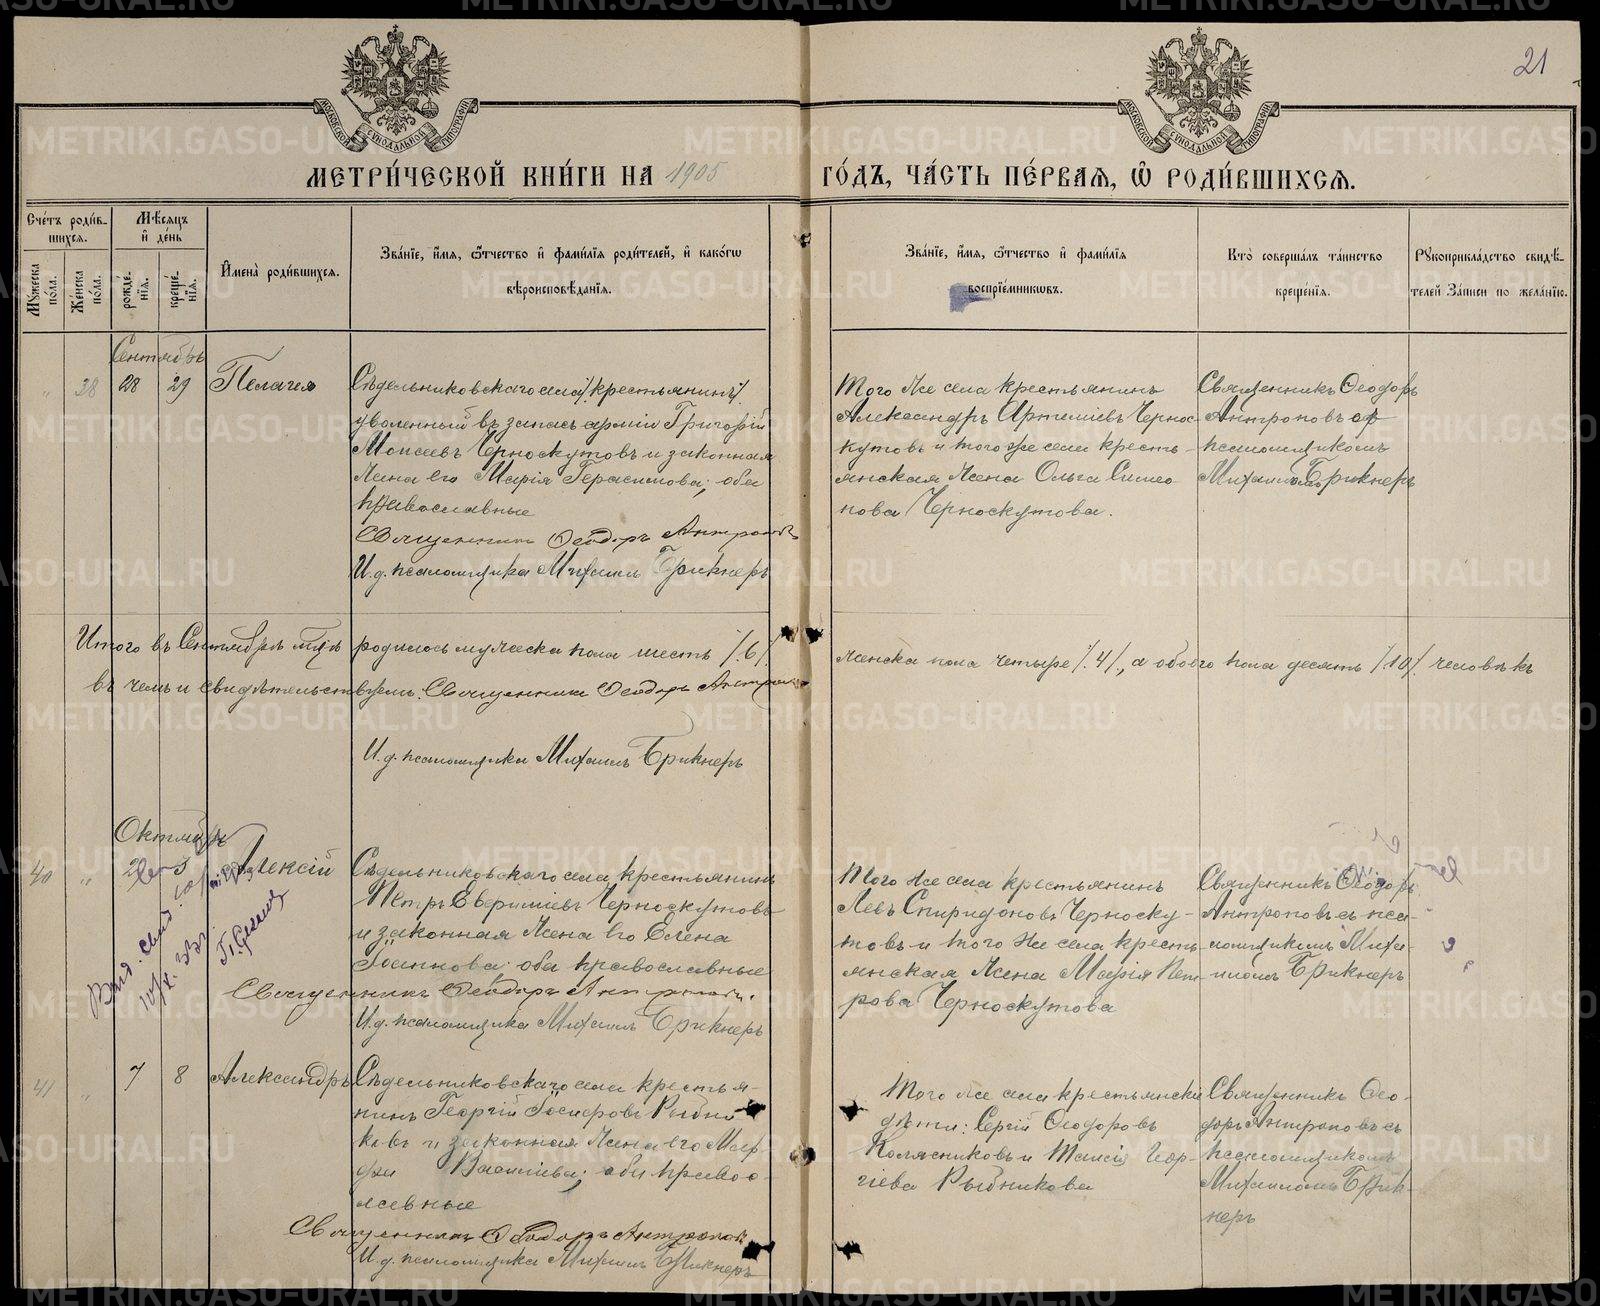 21
МОСКОВСКОЙ СУНОДАЛЬНОЙ ТИПОГРАФІИ
МОСКОВСКОЙ СУНОДАЛЬНОЙ ТИПОГРАФІИ
МЕТРИ́ЧЕСКОЙ КНИ́ГИ НА 1905 ГО́ДЪ, ЧА́СТЬ ПЕ́РВАЯ, Ѽ РОДИ́ВШИХСѦ.
Сче́тъ роди́в-
шихсѧ.
Мужеска по́ла.
Же́нска по́ла.
Мѣ́сѧцъ
и҆ де́нь
рожде́нїѧ.
креще́нїѧ.
И҆мена̀ роди́вшихсѧ.
Зва́нїе, и҆́мѧ, ѻ҆́тчество и҆ фами́лїѧ роди́телей, и҆ како́гѡ
вѣроисповѣ́данїѧ.
Зва́нїе, и҆́мѧ, ѻ҆́тчество и҆ фами́лїѧ
воспрїе́мникѡвъ.
Кто̀ соверша́лъ та́инство
креще́нїѧ.
Рꙋкоприкла́дство свидѣ́-
телей За́писи по жела́нїю.
Сентябрь
" 38 28 29 Пелагея
Сѣдельниковскаго села /крестьянинъ/
уволенный въ запасъ арміи Григорій
Моисеевъ Черноскутовъ и законная
жена его Марія Герасимова; оба
православные
Священникъ Ѳеодоръ Антроповъ
И.д. псаломщика Михаилъ Брикнеръ
Того же села крестьянинъ
Александръ Артеміевъ Чернос-
кутовъ и того же села кресть-
янская жена Ольга Симео
нова Черноскутова.
Священникъ Ѳеодоръ
Антроповъ съ
псаломщикомъ
Михаиломъ Брикнеръ
Итого въ Сентябрѣ м-цѣ родилось мужеска пола шесть /.6/. женска пола четыре /.4/., а обоего пола десять /10/. человѣкъ
въ чемъ и свидѣтельствуемъ: Священникъ Ѳеодоръ Антроповъ
И.д. псаломщика Михаилъ Брикнеръ
Октябрь
40 " 2 3 Алексій
Выд. свид.
Сѣдельниковскаго села крестьянинъ
Петръ Евфиміевъ Черноскутовъ
и законная жена его Елена
Іоаннова; оба православные
Священникъ Ѳеодоръ Антроповъ.
И.д. псаломщика Михаилъ Брикнеръ
Того же села крестьянинъ
Левъ Спиридоновъ Черноску-
товъ и того же села кресть-
янская жена Марія Пет-
рова Черноскутова
Священникъ Ѳеодоръ
Антроповъ съ пса-
ломщикомъ Миха-
иломъ Брикнеръ
41 " 7 8 Александръ
Сѣдельниковскаго села крестья-
нинъ Георгій Іосифовъ Рыбни
ковъ и законная жена его Мар-
фа Васильева; оба право
славные
Священникъ Ѳеодоръ Антроповъ
И.д. псаломщика Михаилъ Брикнеръ
Того же села крестьянскія
дѣти: Сергій Ѳеодоровъ
Колясниковъ и Таисія Геор-
гіева Рыбникова
Священникъ Ѳео-
доръ Антроповъ съ
псаломщикомъ
Михаиломъ Брик-
неръ
METRIKI.GASO-URAL.RU